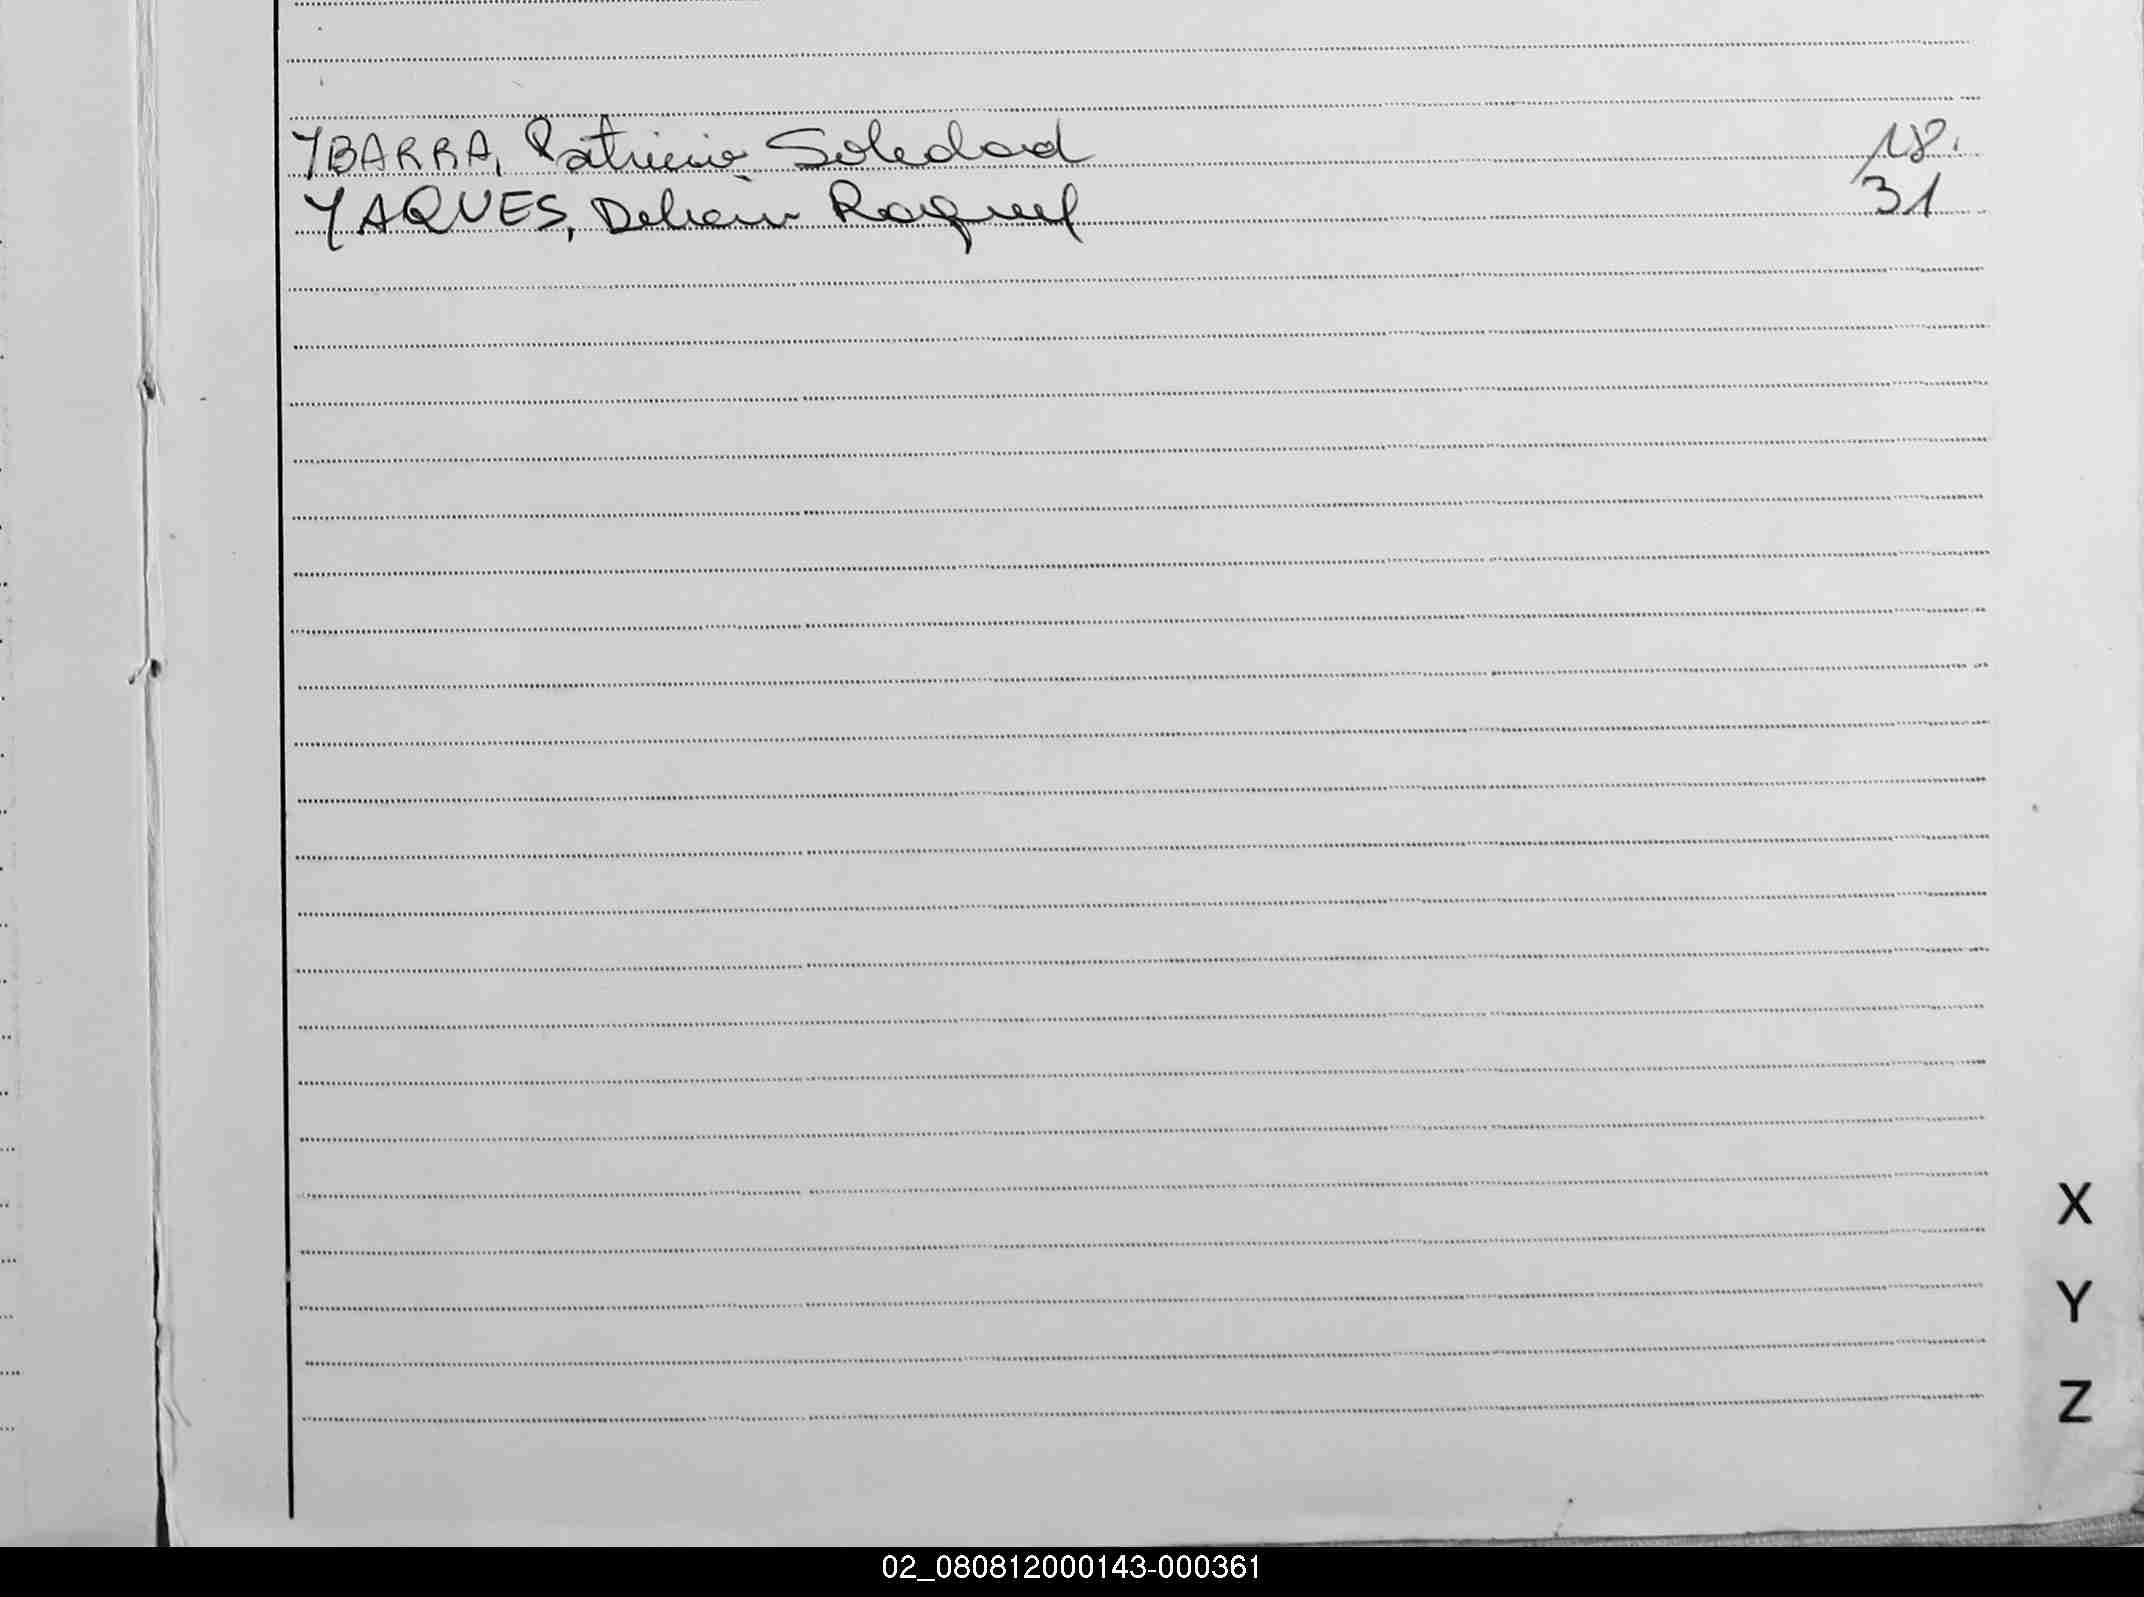 YBARRA, Patricia Soledad 18.
YAQUES, Raquel 31
X
Y
Z
02_080812000143-000361